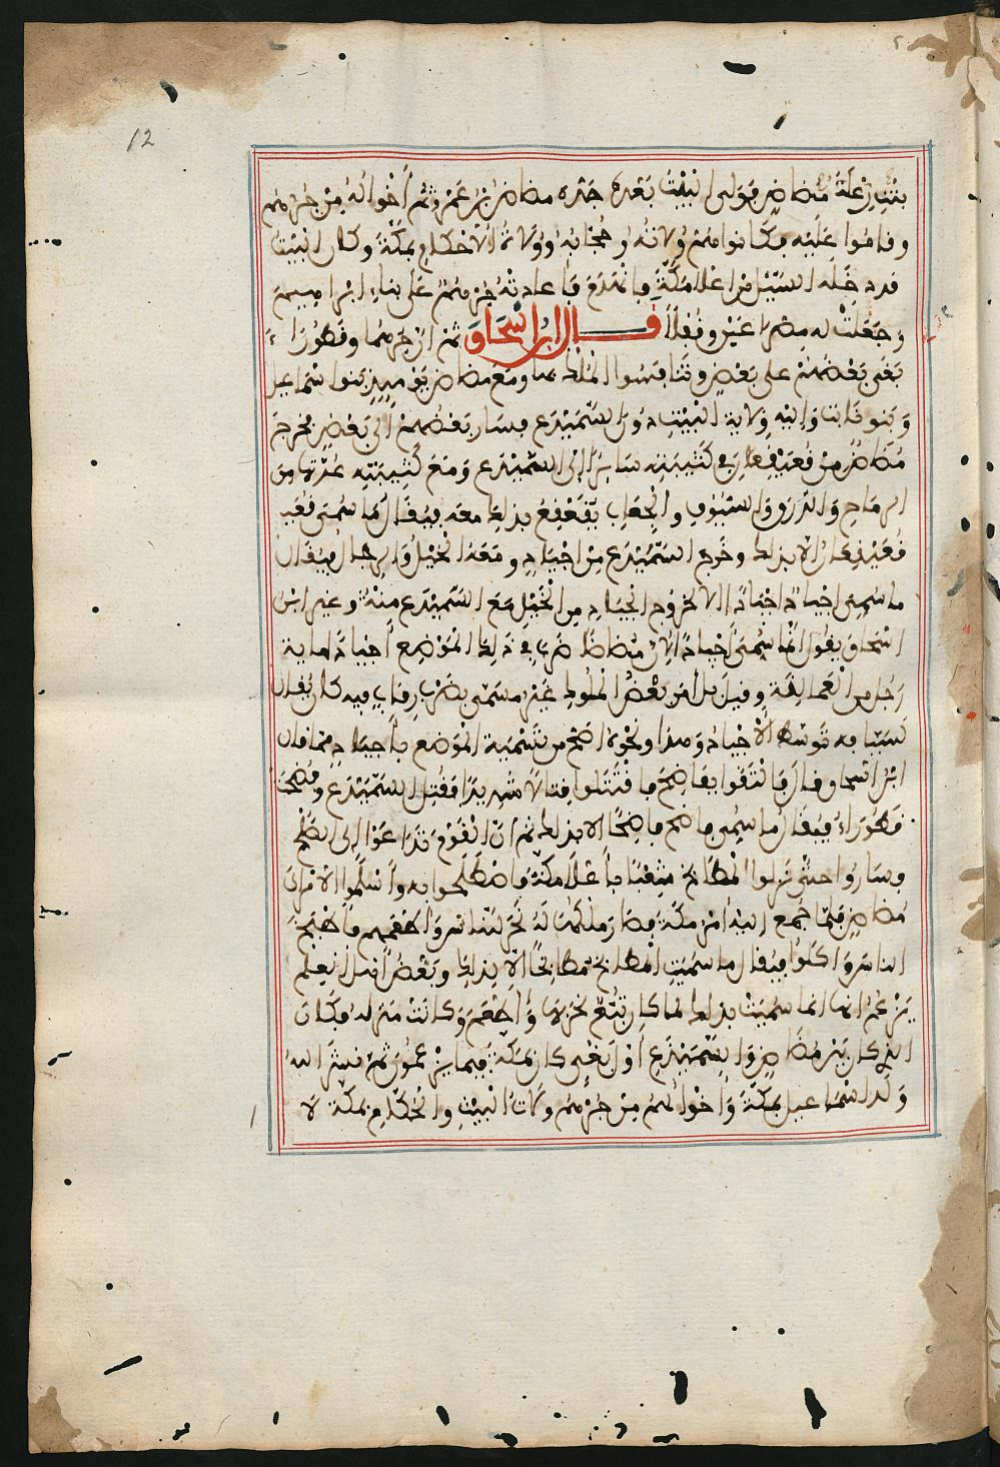 12
بنت رعلة مضاض فولي البيت بعده جده مضاض بن عمرو ثم أخواله من جرهم
وقاموا عليه فكانوا هم ولاته وحجابه وولاة الأحكام بمكة وكان البيت
قد دخله السيل من اعلا مكة فانهدم فأعادته جرهم على بناء ابراهيم
وجعلت له مصراعين وقفلا قال ابن اسحاق ثم ان جرهما وقطوراء
بغى بعضهم على بعض وتنافسوا الملك بها ومع مضاض يومئذ بنوا اسماعيل
وبنو نابت واليه ولاية البيت دون السميدع فسار بعضهم الى بعض فخرج
مضاض من قعيقعان في كتيبته سائرا إلى السميدع ومع كتيبته عدتها من
الرماح والدرق والسيوف والجعاب يقعقع بذلك معه فيقال ما سمي قعيـ
قعيقعان الا بذلك وخرج السميدع من اجياد ومعه الخيل والرجال فيقال
ما سمي اجياد اجيادا الا لخروج الجياد من الخيل مع السميدع منه وغير ابن
اسحاق يقول انما سمي أجيادا لان مضاضا ضرب في ذلك الموضع أجياد ماية
رجل من العمالقة وقيل بل امر بعض الملوك غير مسمى بضرب رقاب فيه فكان يقول
لسيافه توسط الأجياد وهذا ونحوه اصح من تسمية الموضع بأجياد مما قال
ابن اسحاق قال فالتقوا بفاضح فاقتتلوا قتالا شديدا فقتل السميدع وفضحت
قطوراء فيقال ما سمي فاضح فاضحا الا بذلك ثم ان القوم تداعوا إلى الصلح
وساروا حتى نزلوا المطابخ شعبا بأعلا مكة فاصطلحوا به وأسلموا الامر الى
مضاض فلما جمع اليه امر مكة فصار ملكها له نحر للناس وأطعمهم فأطبخ
الناس وأكلوا فيقال ما سميت المطابخ مطابخا الا بذلك وبعض أهل العلم
يزعم انها انما سميت بذلك لما كان تبع نحر بها وأطعم وكانت منزله فكان
الذي كان بين مضاض والسميدع أول بغي كان بمكة فيما يزعمون ثم نشر الله
ولد اسماعيل بمكة وأخوالهم من جرهم ولاة البيت والحكام بمكة لا